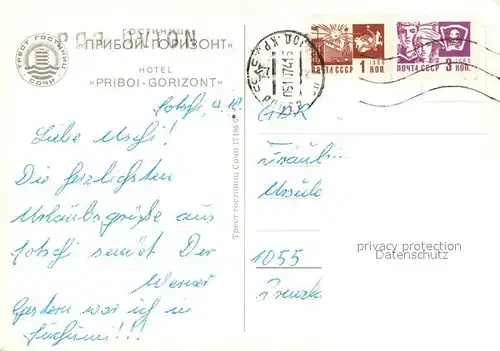 PAR AVION
ГОСТИНИЦА
"ПРИБОЙ-ГОРИЗОНТ"
ТРЕСТ ГОСТИНИЦ
СОЧИ
HOTEL
"PRIBOI-GORIZONT"
ПОЧТА СССР 1 КОП.
1966
ПОЧТА СССР 3 КОП.
1966
Sotschi,
Liebe Uschi!
Die herzlichsten
Urlaubsgrüße aus
Sotschi sendet Der
Werner
Gestern war ich in
Suchumi!!!
Трест гостиниц Сочи
GDR
Fräulein
Ursula
1055
privacy protection
Datenschutz